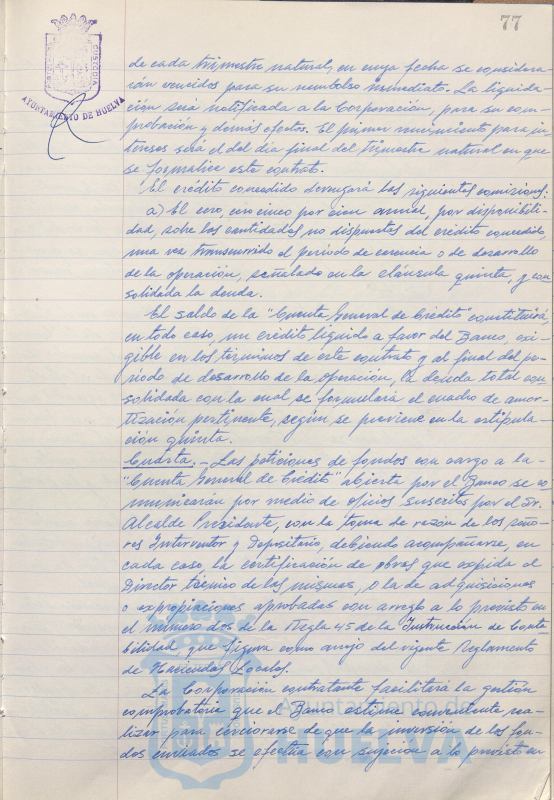 77
CUSTODIA
AYUNTAMIENTO DE HUELVA
de cada trimestre natural, en cuya fecha se considera-
rán vencidos para su reembolso inmediato. La liquida-
ción será notificada a la Corporación, para su com-
probación y demás efectos. El primer vencimiento para in-
tereses será el del día final del trimestre natural en que
se formalice este contrato.
El crédito concedido devengará las siguientes comisiones:
a) El cero, cero cinco por cien annual, por disponibili-
dad, sobre las cantidades no dispuestas del crédito concedido,
una vez transcurrido el período de carencia o de desarrollo
de la operación, señalado en la cláusula quinta, y con
solidada la deuda.
El saldo de la "Cuenta General de Crédito" constituirá,
en todo caso, un crédito líquido a favor del Banco, exi-
gible en los términos de este contrato y al final del pe-
ríodo de desarrollo de la operación, la deuda total con
solidada con la cual se formulará el cuadro de amor-
tización pertinente, según se previene en la estipula-
ción quinta.
Cuarta.- Las peticiones de fondos con cargo a la
"Cuenta General de Crédito" abierta por el Banco se co
municarán por medio de oficios suscritos por el Sr.
Alcalde Presidente, con la toma de razón de los seño-
res Interventor y Depositario, debiendo acompañarse, en
cada caso, la certificación de obras que expida el
Director técnico de las mismas, o la de adquisiciones
o expropiaciones aprobadas con arreglo a lo previsto en
el número dos de la Regla 45 de la Instrucción de Conta
bilidad, que figura como anejo del vigente Reglamento
de Haciendas Locales.
La Corporación contratante facilitará la gestión
comprobatoria que el Banco estime conveniente rea-
lizar para cerciorarse de que la inversión de los fon-
dos enviados se efectúa con sujeción a lo previsto en
Ayuntamiento de
HUELVA